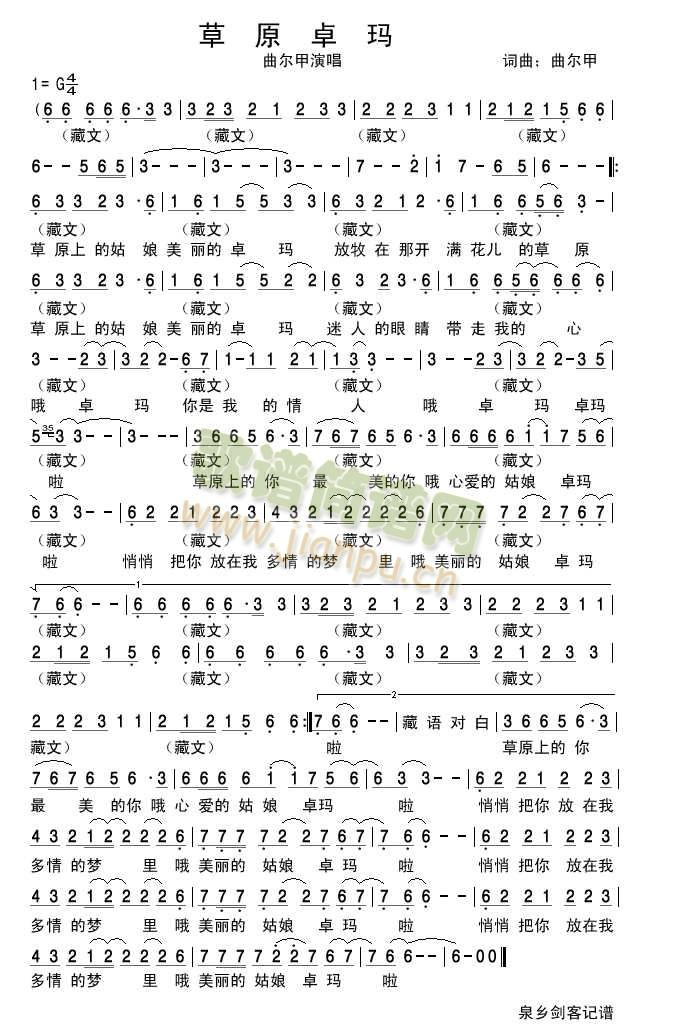 草 原 卓 玛
曲尔甲演唱 词曲：曲尔甲
1=G 4/4
(6 6 6 6 6·3 3|3 2 3 2 1 2 3 3|2 2 2 3 1 1|2 1 2 1 5 6 6|
（藏文） （藏文） （藏文） （藏文）
6-- 5 6 5|3---|3---|3---|7--2|1 7-6 5|6---‖:
6 3 3 2 3·6|1 6 1 5 5 3 3|6 3 2 1 2·6|1 6 6 5 6 3-|
（藏文） （藏文） （藏文） （藏文）
草 原上 的姑 娘 美 丽的 卓 玛 放牧 在 那开 满 花儿 的草 原
6 3 3 2 3·6|1 6 1 5 5 2 2|6 3 2 3·6|1 6 6 5 6 6 6 6|
（藏文） （藏文） （藏文） （藏文）
草 原上 的姑 娘 美 丽的 卓 玛 迷 人 的眼 睛 带 走 我的 心
3--2 3|3 2 2-6 7|1-1 1 2 1|1 3 3--|3--2 3|3 2 2-3 5|
（藏文） （藏文） （藏文） （藏文）
哦 卓 玛 你是 我 的 情 人 哦 卓 玛 卓玛
5 35 3 3--|3---|3 6 6 5 6·3|7 6 7 6 5 6·3|6 6 6 6 1 1 7 5 6|
（藏文） （藏文） （藏文） （藏文）
啦 草原上的 你 最 美的你 哦 心爱的 姑娘 卓玛
6 3 3--|6 2 2 1 2 2 3|4 3 2 1 2 2 2 2 6|7 7 7 7 2 2 7 6 7|
（藏文） （藏文） （藏文） （藏文）
啦 悄悄 把你 放在我 多情 的梦 里 哦 美丽的 姑娘 卓玛
1
7 6 6--|6 6 6 6 6·3 3|3 2 3 2 1 2 3 3|2 2 2 3 1 1|
（藏文） （藏文） （藏文） （藏文）
2 1 2 1 5 6 6|6 6 6 6 6·3 3|3 2 3 2 1 2 3 3|
（藏文） （藏文） （藏文） （藏文）
2
2 2 2 3 1 1|2 1 2 1 5 6 6:‖7 6 6--|藏 语 对 白|3 6 6 5 6·3|
藏文） （藏文） 啦 草原上的 你
7 6 7 6 5 6·3|6 6 6 6 1 1 7 5 6|6 3 3--|6 2 2 1 2 2 3|
最 美 的你 哦 心 爱的 姑 娘 卓玛 啦 悄悄 把你 放 在我
4 3 2 1 2 2 2 2 6|7 7 7 7 2 2 7 6 7|7 6 6--|6 2 2 1 2 2 3|
多情 的梦 里 哦 美丽的 姑娘 卓 玛 啦 悄悄 把你 放在我
4 3 2 1 2 2 2 2 6|7 7 7 7 2 2 7 6 7|7 6 6--|6 2 2 1 2 2 3|
多情 的梦 里 哦 美丽的 姑娘 卓 玛 啦 悄悄 把你 放在我
4 3 2 1 2 2 2 2 6|7 7 7 7 2 2 7 6 7|7 6 6--|6-0 0‖
多情 的梦 里 哦 美丽的 姑娘 卓 玛 啦
歌谱简谱网
www.jianpu.cn
泉乡剑客记谱